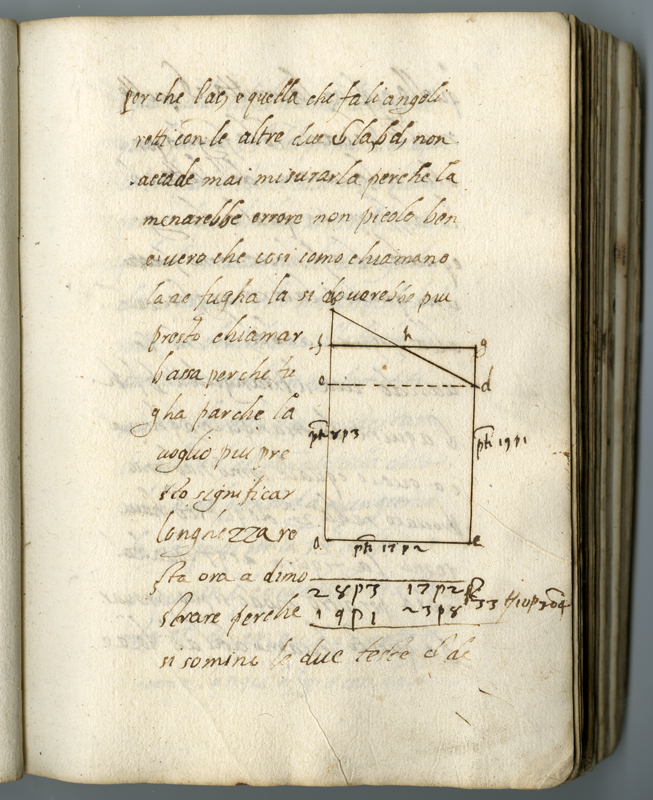 perche l'ae, e quella che fa li angoli
retti con le altre due b la, bd, non
accade mai misurarla perche la
menarebbe errore non picolo ben
e vero che cosi como chiamano
la ae fugha la si dovarebbe piu
presto chiamar
bassa perche fu
gha parche la
voglio piu pre
sto significar
longhezza re
sta ora a dimo
strare perche
si somino le due teste
b
f h g
o d
pti 28 p 3
pti 19 p 1
a e
pti 17 p 2
28 p 3 17 p 2
19 p 1 23 p 8